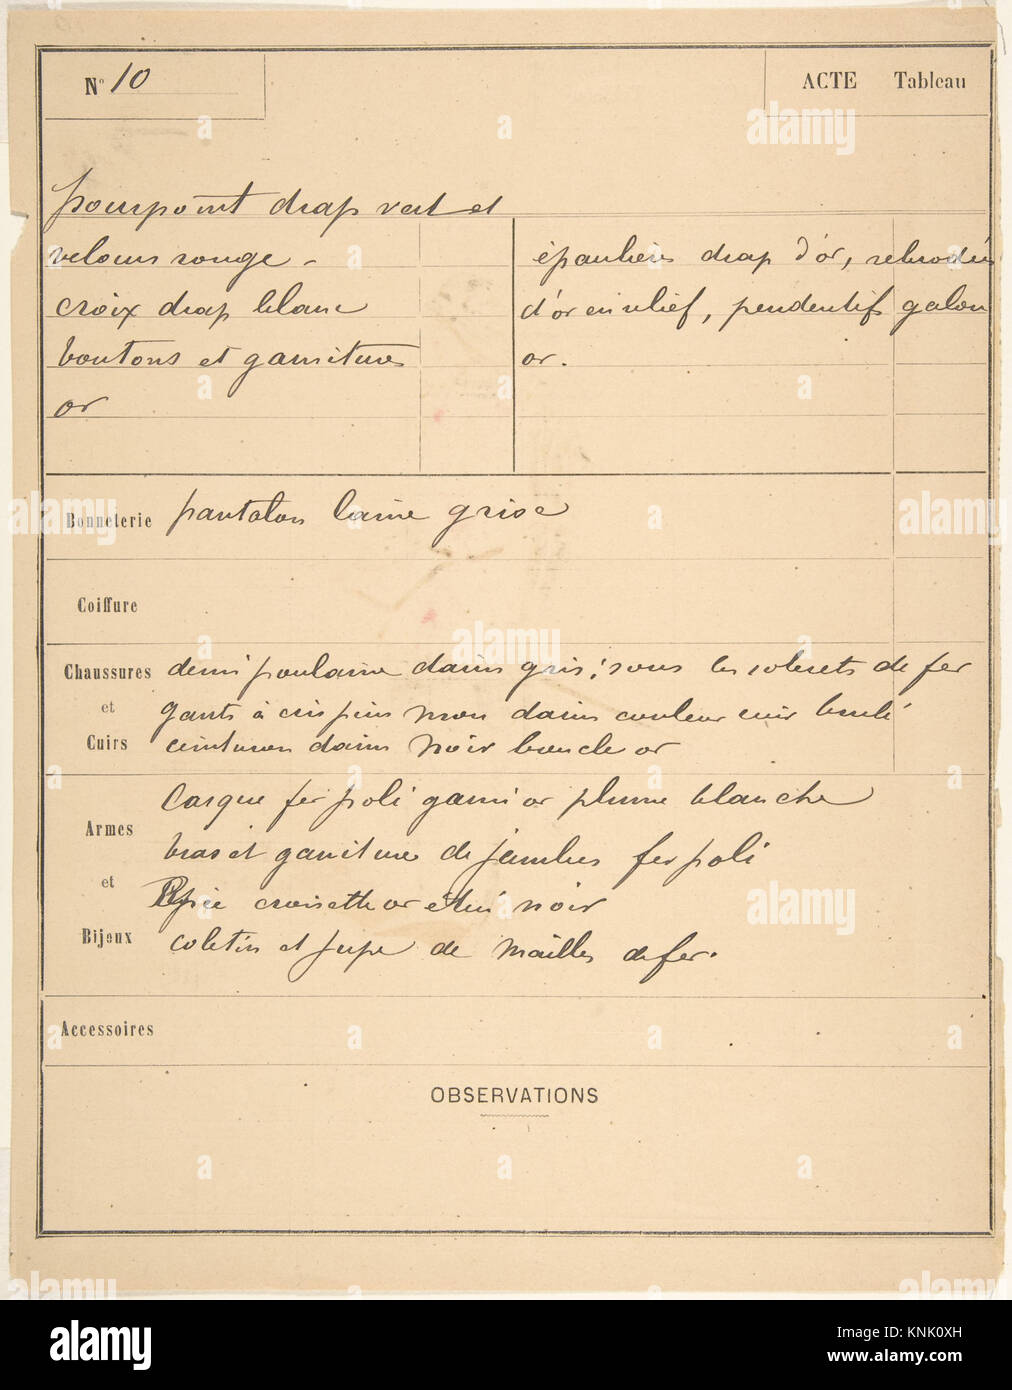 Nº 10
ACTE Tableau
pourpoint drap vert et
velours rouge -
croix drap blanc
boutons et garnitures
or
épaulières drap d'or, rebrodées
d'or en relief, pendentifs galon
or.
Bonneterie pantalon laine grise
Coiffure
Chaussures et Cuirs
demi poulaine daim gris; sous les solerets de fer
gants à crispin mon daim couleur cuir brulé
ceinturon daim noir boucle or
Armes et Bijoux
Casque fer poli garni or plume blanche
bras et garniture de jambes fer poli
Epée croisette or étui noir
coletin et jupe de mailles de fer.
Accessoires
OBSERVATIONS
alamy
Image ID: KNK0XH
www.alamy.com